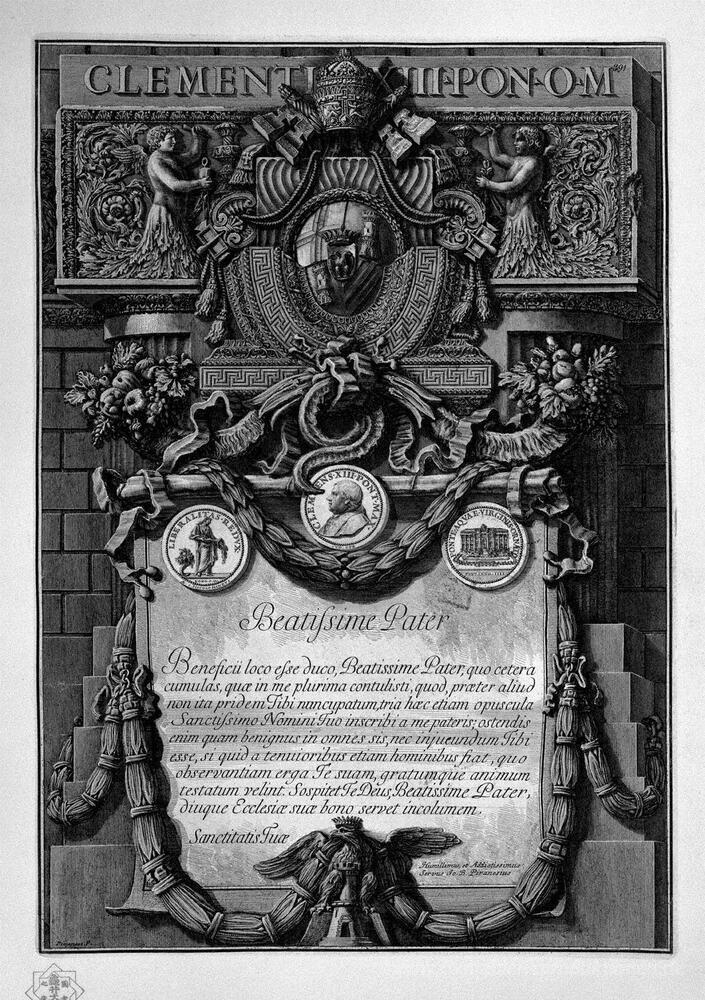 CLEMENTI XIII·PON·O·M
291
CLEMENS·XIII·PONT·MAX
LIBERALITAS·REDVX
Beatiſsime Pater
Beneficii loco eſse duco, Beatissime Pater, quo cetera
cumulas, quæ in me plurima contulisti, quod, præter aliud
non ita pridem Tibi nuncupatum, tria hæc etiam opuscula
Sanctiſsimo Nomini Tuo inscribi a me pateris; ostendis
enim quam benignus in omnes sis, nec injucundum Tibi
esse, si quid a tenuioribus etiam hominibus fiat, quo
observantiam erga Te suam, gratumque animum
testatum velint. Sospitet Te Deus, Beatissime Pater,
diuque Ecclesiæ suæ bono servet incolumem.
Sanctitatis Tuæ
Humillimus, et Addictissimus
Servus Jo. B. Piranesius